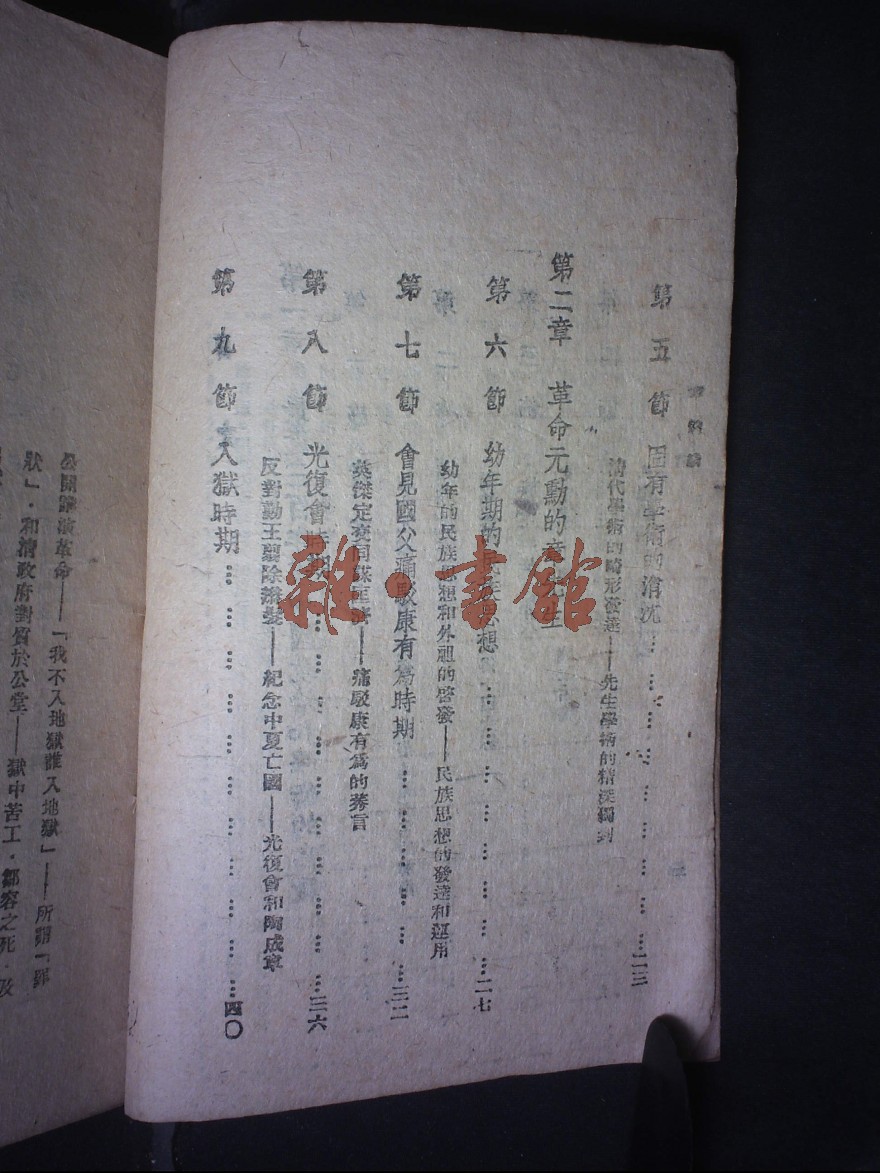 第五節 固有學術的消沈……二三
清代學術的畸形發達——先生學術的精深獨到
第二章 革命元勳的章先生
第六節 幼年期的民族思想……二七
幼年的民族思想和外祖的啓發——民族思想的發達和運用
第七節 會見國父痛駁康有爲時期……三二
英傑定交同謀匡濟——痛駁康有爲的莠言
第八節 光復會時期……三六
反對勤王翦除辮髮——紀念中夏亡國——光復會和陶成章
第九節 入獄時期……四〇
公開講演革命——「我不入地獄誰入地獄」——所謂「罪
狀」．和清政府對質於公堂——獄中苦工．鄒容之死．及
雜·書館